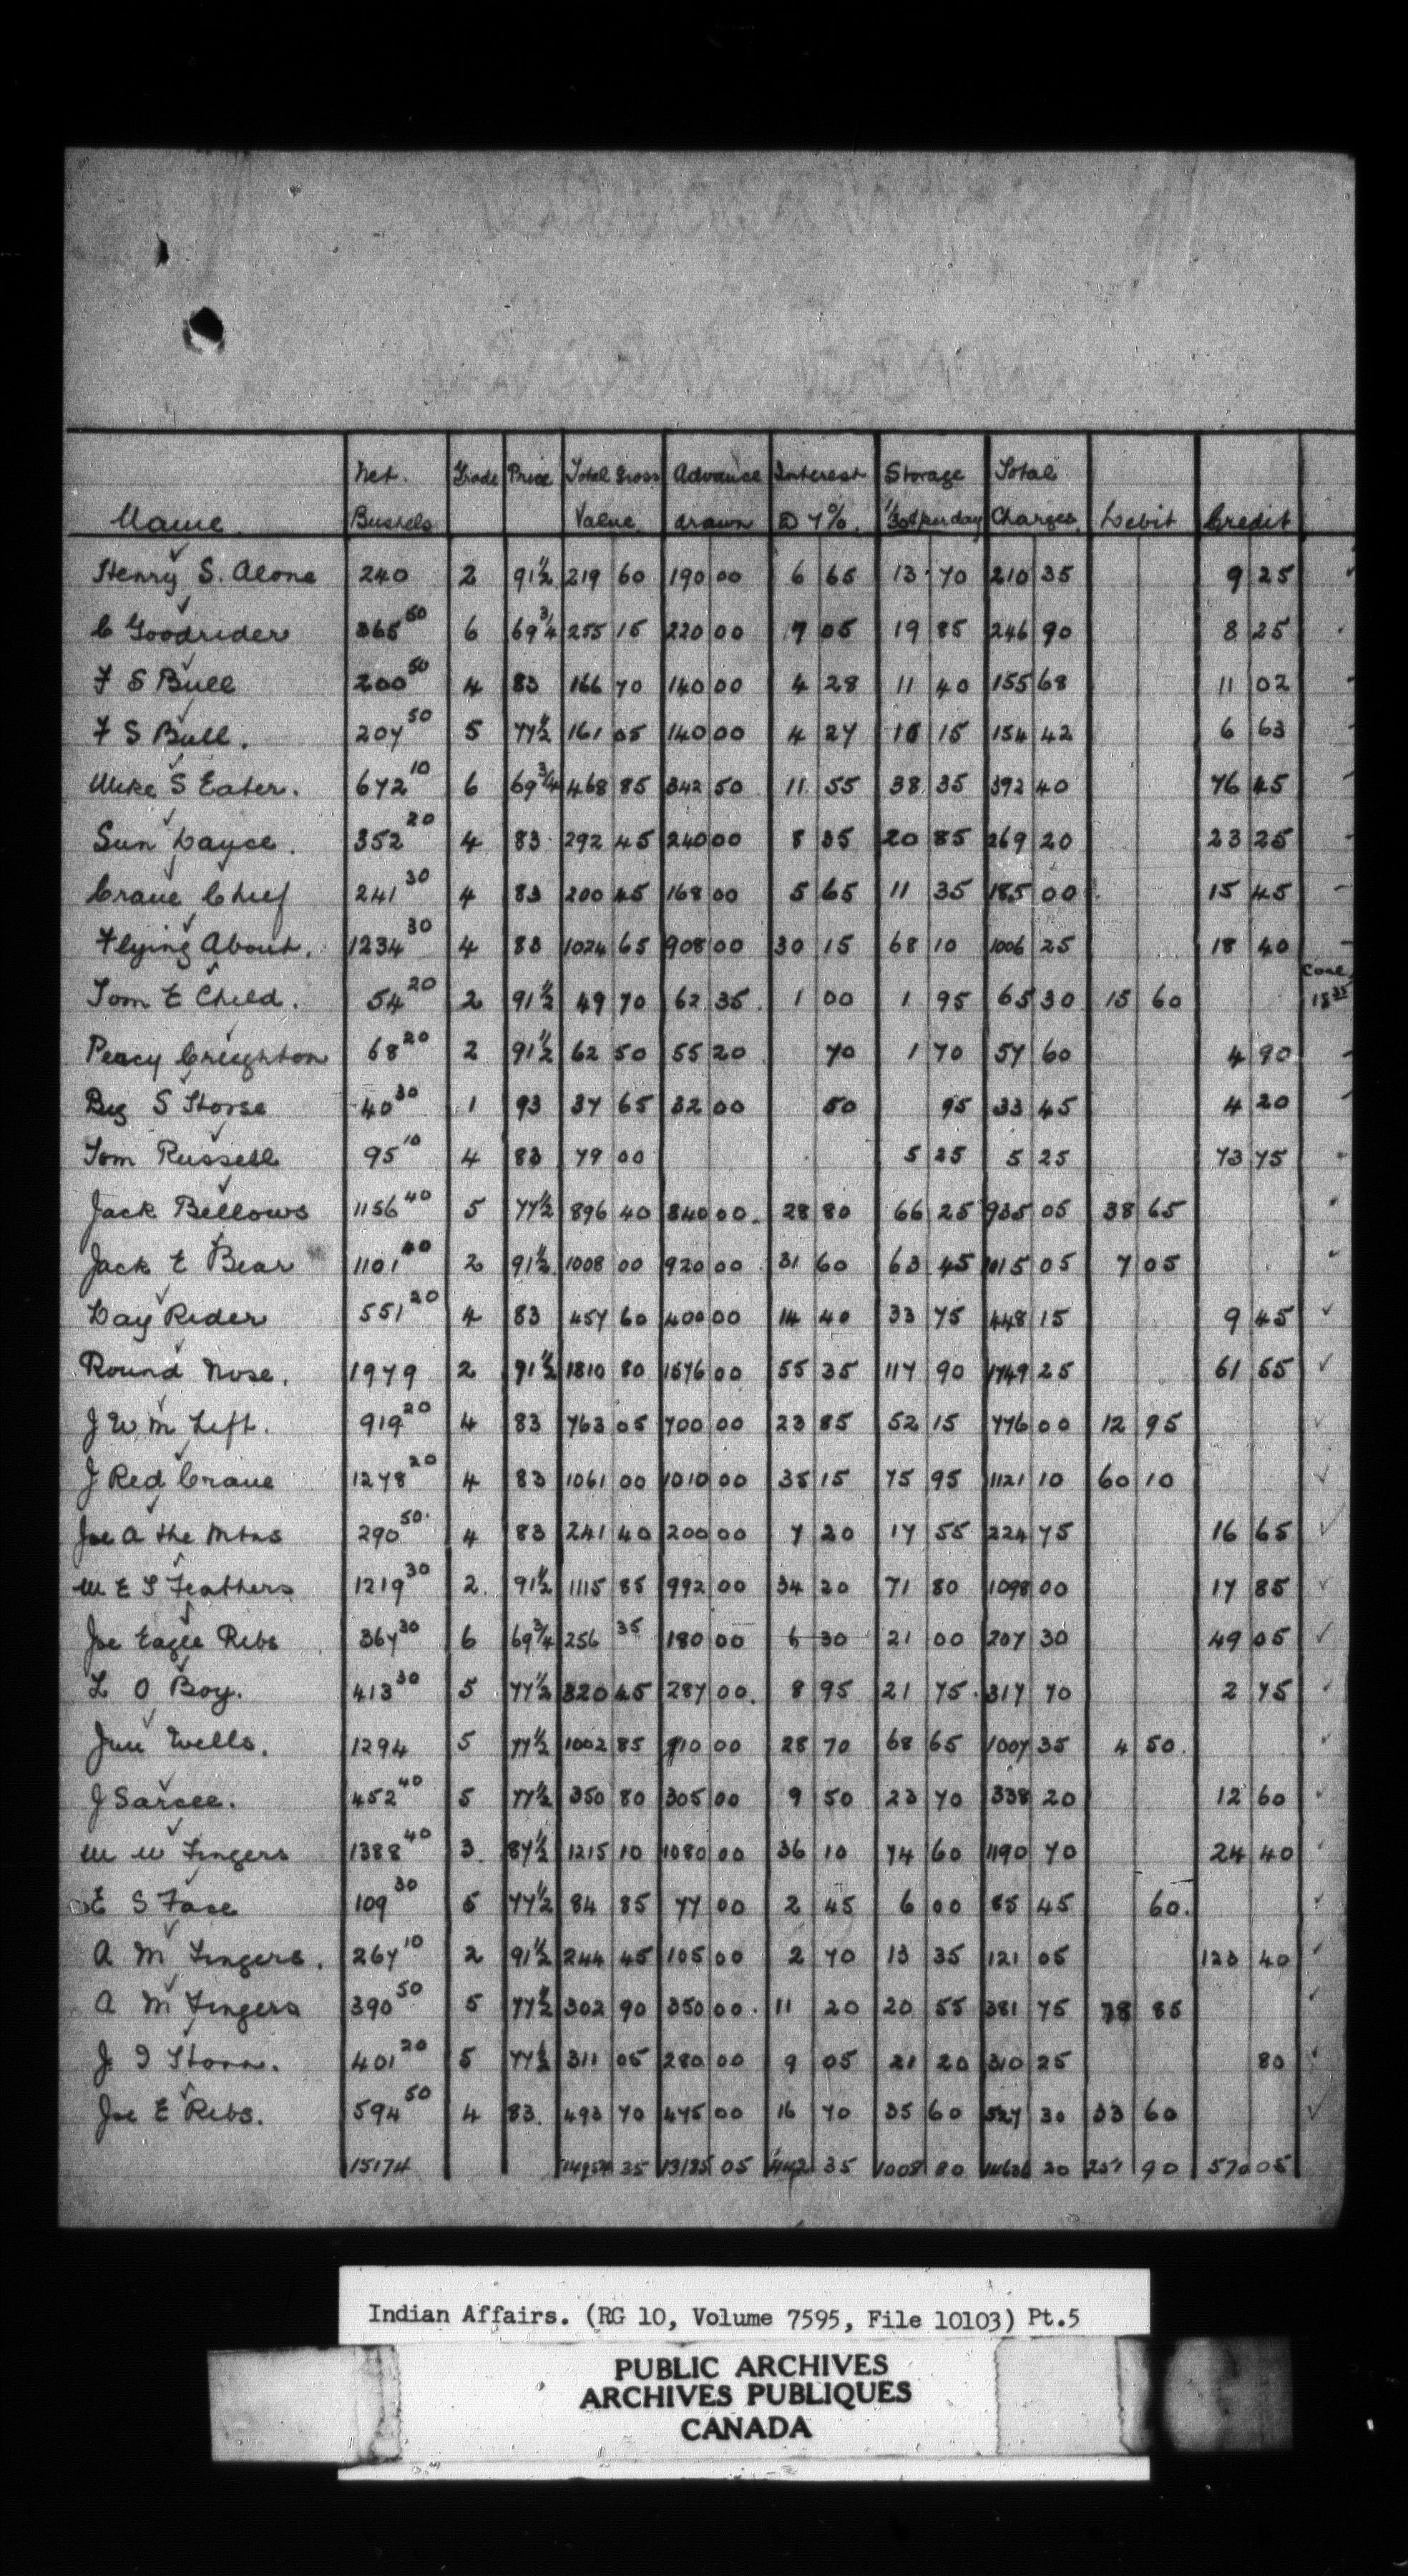 Name Net. Bushels Grade Price Total Gross Value Advance drawn Interest @ 7% Storage 1/30¢ per day Total Charges Debit Credit
Henry S. Alone 240 2 91½ 219 60 190 00 6 65 13 70 210 35 9 25
C Goodrider 365 50 6 69¾ 255 15 220 00 7 05 19 85 246 90 8 25
F S Bull 200 50 4 83 166 70 140 00 4 28 11 40 155 68 11 02
F S Bull. 207 50 5 77½ 161 05 140 00 4 27 10 15 154 42 6 63
Mike S Eater. 672 10 6 69¾ 468 85 342 50 11 55 38 35 392 40 76 45
Sun Dayce. 352 20 4 83 292 45 240 00 8 35 20 85 269 20 23 25
Crane Chief 241 30 4 83 200 45 168 00 5 65 11 35 185 00 15 45
Flying About. 1234 30 4 83 1024 65 908 00 30 15 68 10 1006 25 18 40
Tom E Child. 54 20 2 91½ 49 70 62 35 1 00 1 95 65 30 15 60 Coal 18 35
Percy Creighton 68 20 2 91½ 62 50 55 20 70 1 70 57 60 4 90
Big S Horse 40 30 1 93 37 65 32 00 50 95 33 45 4 20
Tom Russell 95 10 4 83 79 00 5 25 5 25 73 75
Jack Bellows 1156 40 5 77½ 896 40 840 00 28 80 66 25 935 05 38 65
Jack E Bear 1101 40 2 91½ 1008 00 920 00 31 60 63 45 1015 05 7 05
Day Rider 551 20 4 83 457 60 400 00 14 40 33 75 448 15 9 45
Round Nose. 1979 2 91½ 1810 80 1576 00 55 35 117 90 1749 25 61 55
J W m Left. 919 20 4 83 763 05 700 00 23 85 52 15 776 00 12 95
J Red Crane 1278 20 4 83 1061 00 1010 00 35 15 75 95 1121 10 60 10
Joe A the Mtns 290 50 4 83 241 40 200 00 7 20 17 55 224 75 16 65
M E S Feathers 1219 30 2. 91½ 1115 85 992 00 34 20 71 80 1098 00 17 85
Joe Eagle Ribs 367 30 6 69¾ 256 35 180 00 6 30 21 00 207 30 49 05
L O Boy. 413 30 5 77½ 320 45 287 00 8 95 21 75 317 70 2 75
Jim Wells. 1294 5 77½ 1002 85 910 00 28 70 68 65 1007 35 4 50
J Sarcee. 452 40 5 77½ 350 80 305 00 9 50 23 70 338 20 12 60
M W Fingers 1388 40 3 87½ 1215 10 1080 00 36 10 74 60 1190 70 24 40
E S Face 109 30 5 77½ 84 85 77 00 2 45 6 00 85 45 60.
A M Fingers. 267 10 2 91½ 244 45 105 00 2 70 13 35 121 05 123 40
A M Fingers 390 50 5 77½ 302 90 350 00 11 20 20 55 381 75 78 85
J I Horn. 401 20 5 77½ 311 05 280 00 9 05 21 20 310 25 80
Joe E Ribs. 594 50 4 83. 493 70 475 00 16 70 35 60 527 30 33 60
15174 35 13185 05 442 35 1008 80 14636 20 251 90 570 05
Indian Affairs. (RG 10, Volume 7595, File 10103) Pt.5
PUBLIC ARCHIVES
ARCHIVES PUBLIQUES
CANADA